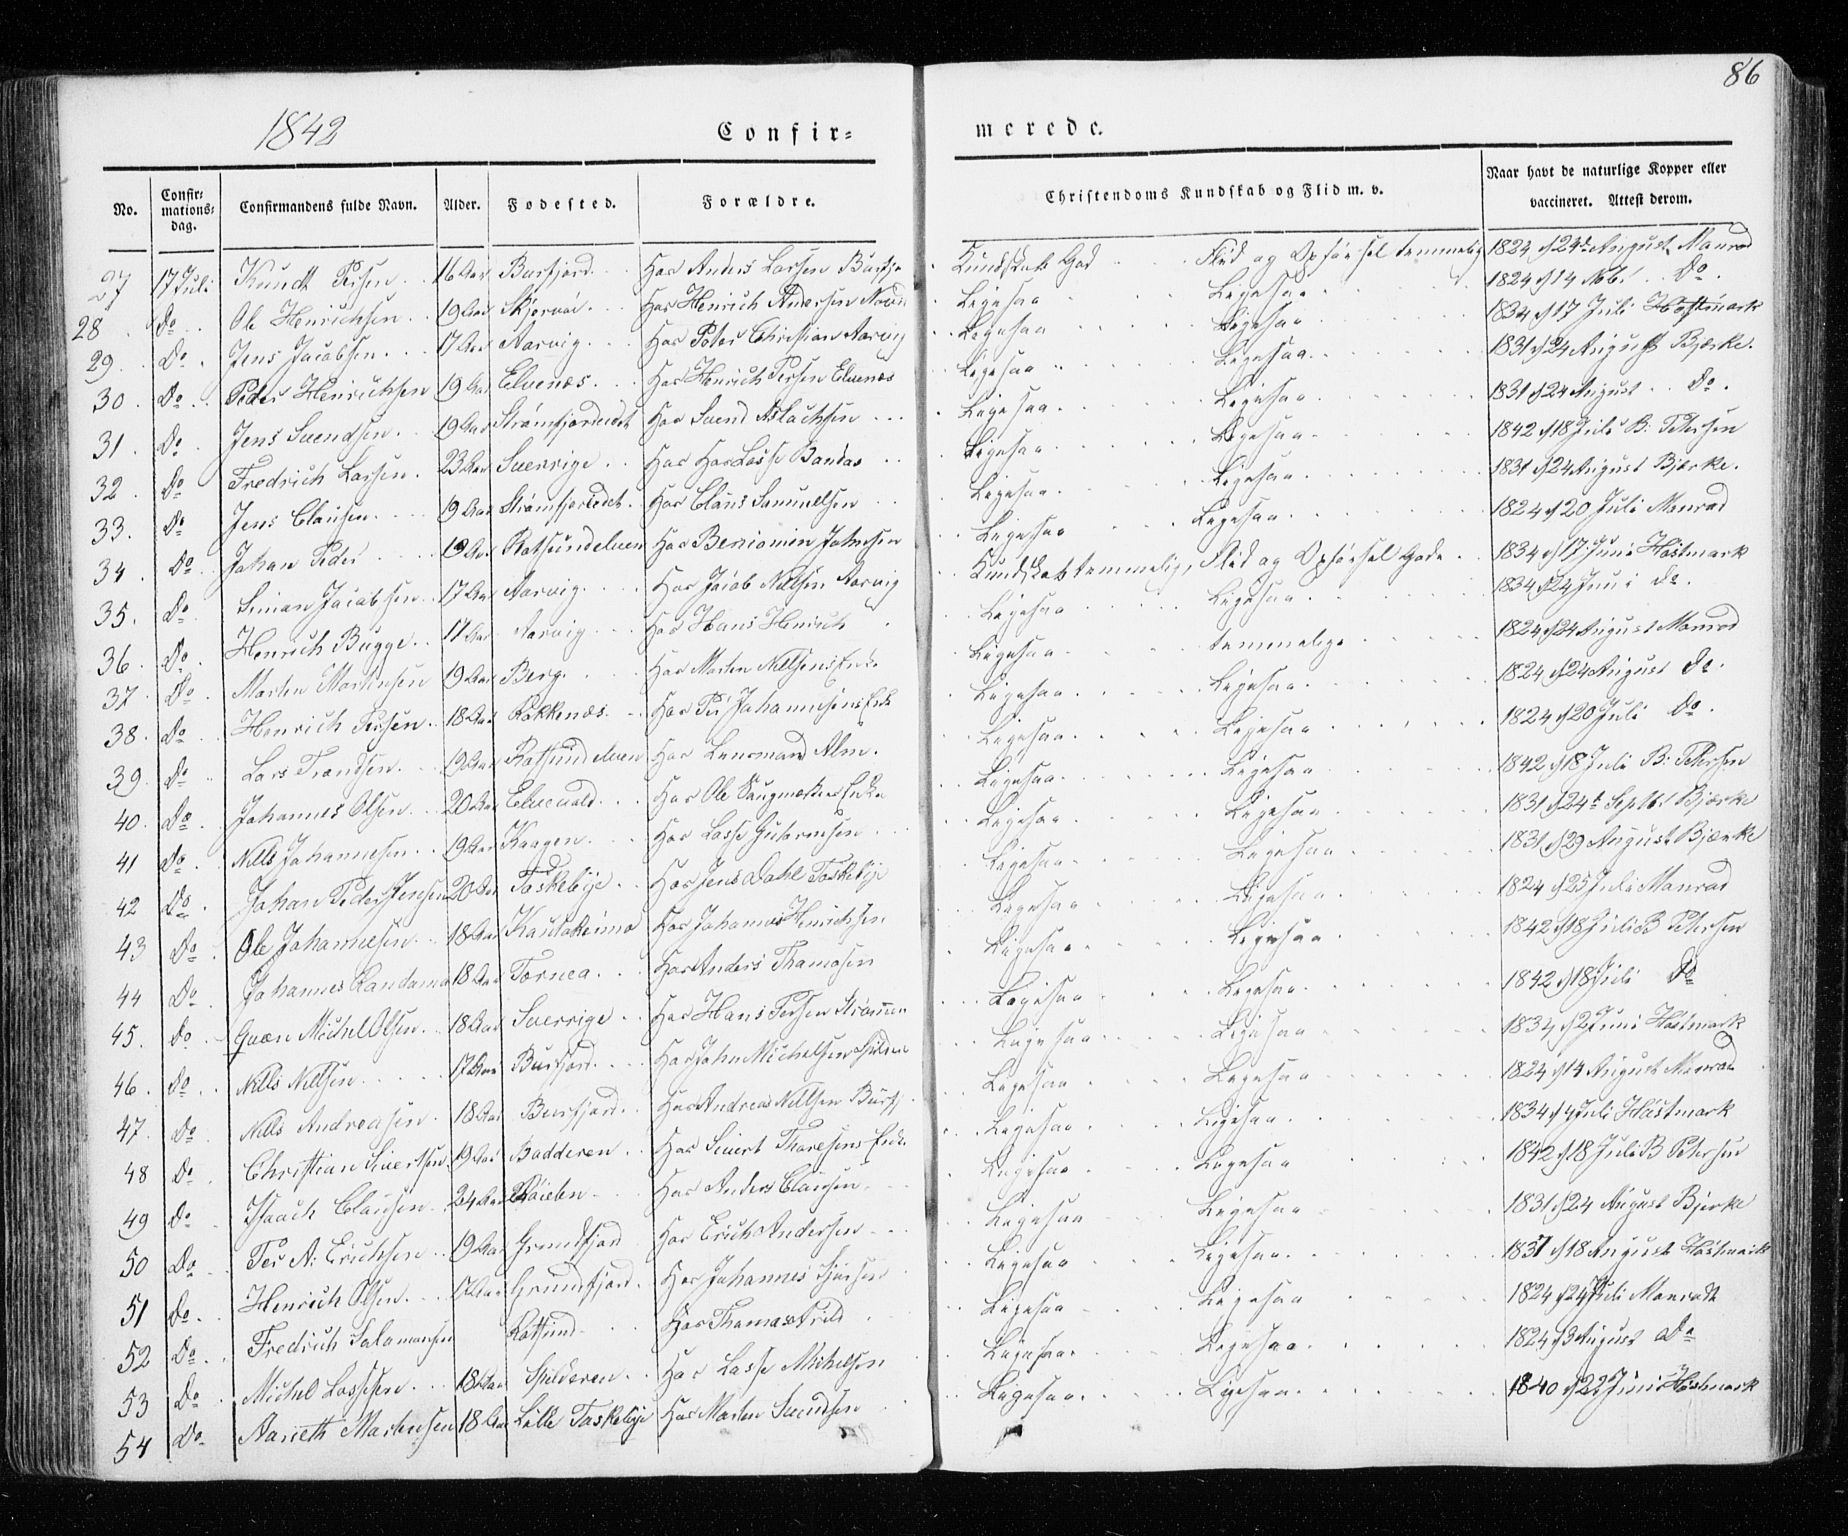 86
1842
Confir= merede.
No. | Confir=mations=dag. | Confirmandens fulde Navn. | Alder. | Fødested. | Forældre. | Christendoms Kundskab og Flid m. v. | Naar havt de naturlige Kopper eller vaccineret. Attest derom.
27 17 Juli Knudt Persen 16 Aar Burfjord Hos Anders Larsen Burfj Kundskab God Flid og Opførsel temmelig 1824 d 24de August Monrad
28 Do Ole Henrichsen 19 Aar Skjervøe Hos Henrich Andersen Ligesaa Ligesaa 1824 d 14 Do
29 Do Jens Jacobsen 17 Aar Aarvig Hos Peter Christian Aarvig Ligesaa Ligesaa 1834 d 17 Juli Høstmark
30 Do Peder Henrichsen 19 Aar Elvenæs Hos Henrich Persen Elvenæs Ligesaa Ligesaa 1831 d 24 August Bjerke
31 Do Jens Svendsen 19 Aar Strømfjordeidet Hos Svend Aslachsen Ligesaa Ligesaa 1831 d 24 August Do
32 Do Fredrich Larsen 23 Aar Sverrige Hos Lasse Bandas Ligesaa Ligesaa 1842 d 18 Juli B: Petersen
33 Do Jens Clausen 19 Aar Strømfjordeidet Hos Claus Samuelsen Ligesaa Ligesaa 1831 d 24 August Bjerke
34 Do Johan Peder 19 Aar Rotsundelven Hos Beniamin Johnsen Ligesaa Ligesaa 1824 d 20 Juli Monrad
35 Do Simon Jacobsen 17 Aar Aarvig Hos Jacob Nielsen Aarvig Kundskab temmelig, Flid og Opførsel Gode 1834 d 17 Juni Høstmark
36 Do Henrich Bugge 17 Aar Aarvig Hos Hans Henrich Ligesaa Ligesaa 1834 d 24 Juni Do
37 Do Morten Mortensen 19 Aar Berg Hos Morten Nielsens Enke Ligesaa temmelige 1824 d 24 August Monrad
38 Do Henrich Persen 18 Aar Kokkenæs Hos Per Johannesens Enke Ligesaa Ligesaa 1824 d 24 August Do
39 Do Lars Trondsen 19 Aar Rotsundelven Hos Lensmand Alm Ligesaa Ligesaa 1824 d 20 Juli Do
40 Do Johannes Olsen 20 Aar Elvevold Hos Ole Enke Ligesaa Ligesaa 1842 d 18 Juli B: Petersen
41 Do Nills Johannesen 19 Aar Kaagen Hos Lasse Guttormsen Ligesaa Ligesaa 1831 d 24 Septbr Bjerke
42 Do Johan Peder Jensen 20 Aar Taskebye Hos Jens Dahl Taskebye Ligesaa Ligesaa 1831 d 29 August Bjerke
43 Do Ole Johannesen 18 Aar Kautokeino Hos Johannes Henrichsen Ligesaa Ligesaa 1824 d 25 Juli Monrad
44 Do Johannes Randama 18 Aar Tornea Hos Anders Thomasen Ligesaa Ligesaa 1842 d 18 Juli B Petersen
45 Do Qvæn Michel Olsen 18 Aar Sverrige Hos Hans Persen Strømmen Ligesaa Ligesaa 1842 d 18 Juli Do
46 Do Nills Nilsen 17 Aar Burfjord Hos John Michelsen Spilder Ligesaa Ligesaa 1834 d 2 Juni Høstmark
47 Do Nills Andreasen 18 Aar Burfjord Hos Andreas Nilsen Burfj Ligesaa Ligesaa 1824 d 14 August Monrad
48 Do Christian Sivertsen 19 Aar Badderen Hos Sivert Thoresens Enke Ligesaa Ligesaa 1834 d 4 Juli Høstmark
49 Do Isaach Clausen 24 Aar Hos Anders Clausen Ligesaa Ligesaa 1842 d 18 Juli B Petersen
50 Do Per A: Erichsen 19 Aar Grundfjord Hos Erich Andersen Ligesaa Ligesaa 1831 d 24 August Bjerke
51 Do Henrich Olsen 17 Aar Grundfjord Hos Johannes Ligesaa Ligesaa 1837 d 18 August Høstmark
52 Do Fredrich Salamonsen Rotsund Hos Thomas Arild Ligesaa Ligesaa 1824 d 24 Juli Monradt
53 Do Michel Lassesen 18 Aar Spilderen Hos Lasse Michelsen Ligesaa Ligesaa 1824 d 3 August Do
54 Do Marieth Mortensen 18 Aar Lille Taskebye Hos Morten Svendsen Ligesaa Ligesaa 1840 d 22 Juni Høstmark